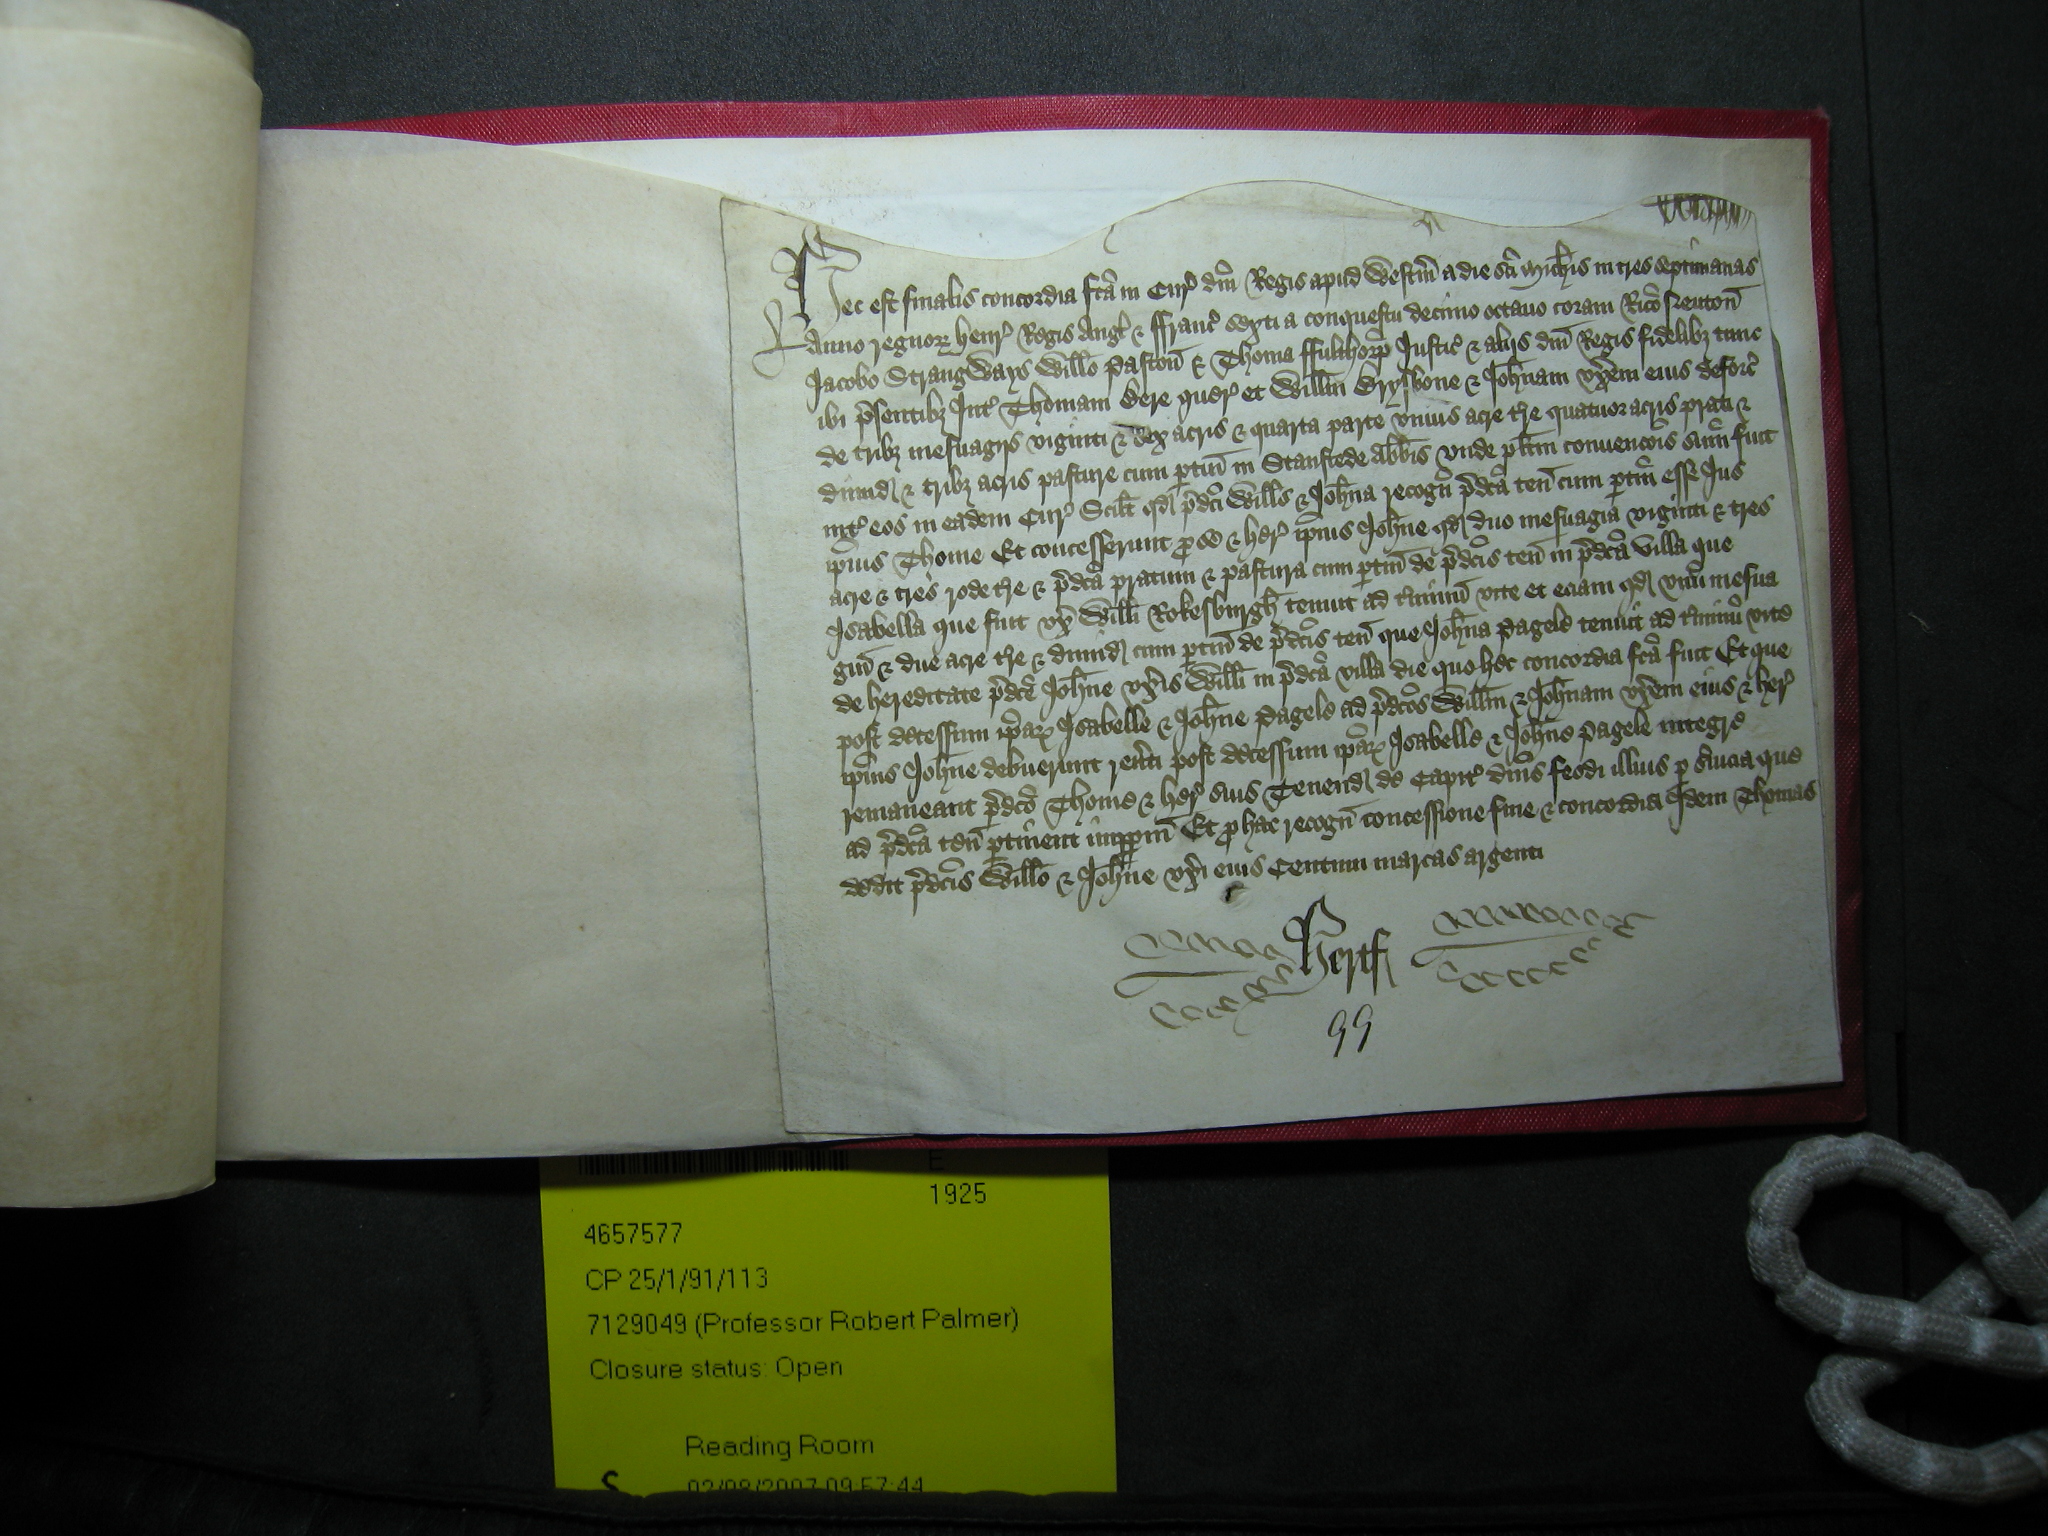 Hec est finalis concordia fcã in Cur̃ dñi Regis apud Westm̃ a die sc̃i Mich̃is in tres septimanas
Anno regnoꝝ Henr̃ Regis Angl̃ & Franc̃ sexti a conquestu decimo octauo coram Ric̃o Neuton̄
Jacobo Strangways Willo Paston̄ & Thoma ffulthorp̃ Justic̃ & alijs dñi Regis fidelibȝ tunc
ibi p̃sentibȝ Int̃ Thomam Bere quer̃ et Will̃m & Joh̃nam vx̃em eius deforc̃
de tribȝ mesuagijs viginti & sex acris & quarta parte vnius acre t̃re quatuor acris prati &
dimid̃ & tribȝ acris pasture cum ptiñ in Stanstede Abb̃is vnde pl̃itm conuenc̃ois sum̃ fuit
int̃ eos in eadem Cur̃ Scil̃t qd̃ p̃dc̃i Will̃s & Joh̃na recogñ p̃dc̃a teñ cum ptiñ esse Jus
ip̃ius Thome Et concesserunt ꝓ se & her̃ ip̃ius Joh̃ne qd̃ duo mesuagia viginti & tres
acre & tres rode t̃re & p̃dc̃a pratum & pastura cum ptiñ de p̃dc̃is teñ in p̃dc̃a villa que
Isabella que fuit vx̃ Will̃i Rokesburgh̃ tenuit ad t̃minũ vite et eciam qd̃ vnũ mesua
giũ & due acre t̃re & dimid̃ cum ptiñ de p̃dc̃is teñ que Joh̃na Pagele tenuit ad t̃minũ vite
de hereditate p̃dc̃e Joh̃ne vx̃is Will̃i in p̃dc̃a villa die quo hec concordia fcã fuit Et que
post decessum ip̃aꝝ Isabelle & Joh̃ne Pagele ad p̃dc̃os Will̃m & Joh̃nam vx̃em eius & her̃
ip̃ius Joh̃ne debuerunt reũti post decessum ip̃aꝝ Isabelle & Joh̃ne Pagele integre
remaneant p̃dc̃o Thome & her̃ suis Tenend̃ de Capit̃ dñis feodi illius ꝑ s̃uicia que
ad p̃dc̃a teñ ptinent impp̃m Et ꝓ hac recogñ concessione fine & concordia Idem Thomas
dedit p̃dc̃is Will̃o & Joh̃ne vx̃i eius Centum marcas argenti
Hertf
99
E
1925
4657577
CP 25/1/91/113
7129049 (Professor Robert Palmer)
Closure status: Open
Reading Room
S
02/08/2007 09:57:44